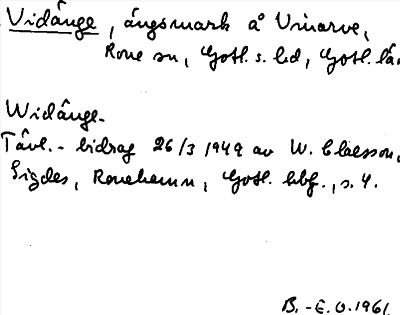 Vidänge, ängsmark å Vinarve,
Rone sn, Gotl. s. hd, Gotl. län
Widänge.
Tävl.-bidrag 26/3 1949 av W. Claesson,
Sigdes, Ronehamn, Gotl. hbf., s. 4.
B.-E.O.1961